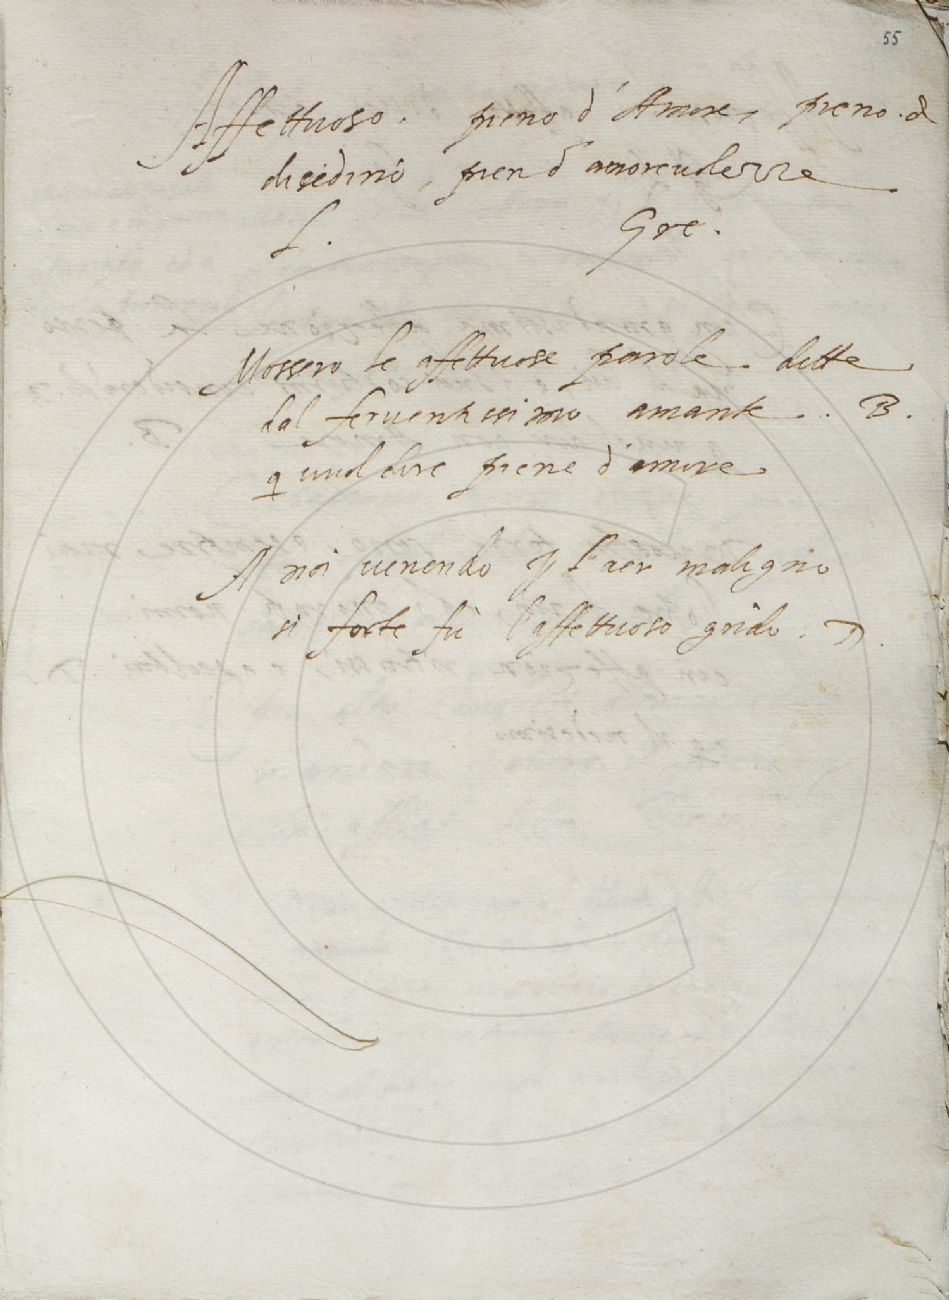 55
Affettuoso. pieno d'Amore, pieno. d
disiderio, pien d amoreuolezze
L. Gre.
Mossero le affettuose parole dette
dal feruentissimo amante. B.
q uuol dire piene d'amore
A noi uenendo l'aer maligno
sì forte fù l'affettuoso grido. D.